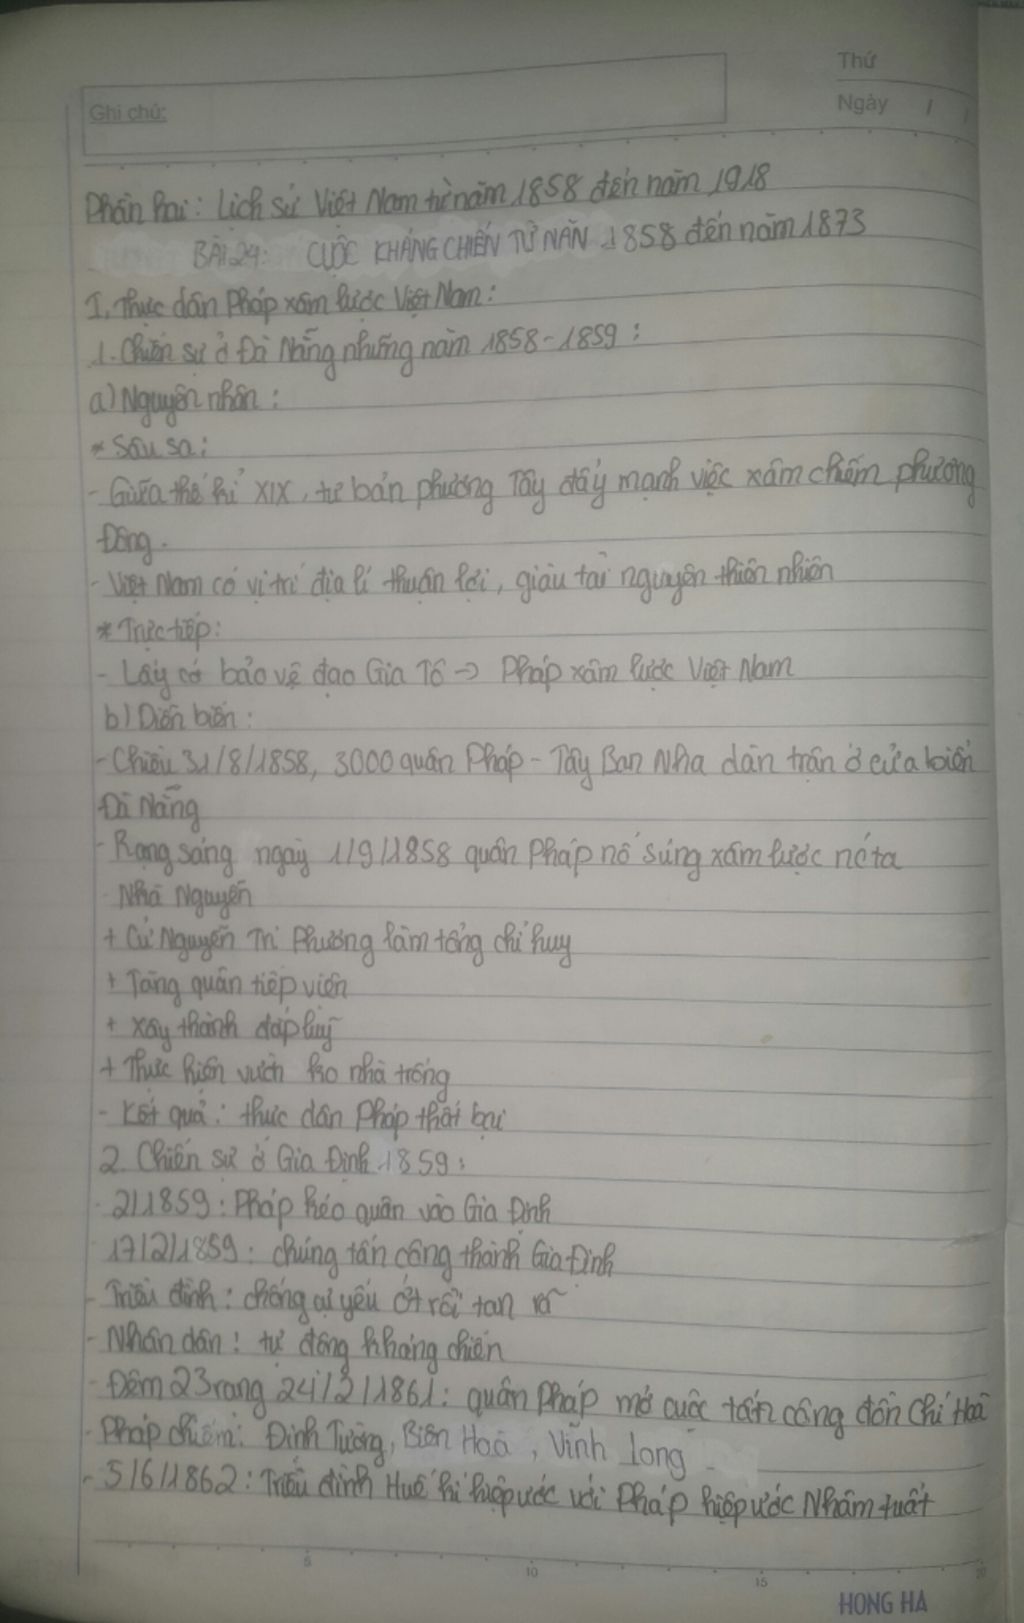 Thứ
Ghi chú:
Ngày / /
Phần hai: Lịch sử Việt Nam từ năm 1858 đến năm 1918
BÀI 24: CUỘC KHÁNG CHIẾN TỪ NĂN 1858 đến năm 1873
I, Thực dân Pháp xâm lược Việt Nam:
1. Chiến sự ở Đà Nẵng những năm 1858-1859:
a) Nguyên nhân:
* Sâu sa:
- Giữa thế kỉ XIX, tư bản phương Tây đẩy mạnh việc xâm chiếm phương
Đông.
- Việt Nam có vị trí địa lí thuận lợi, giàu tài nguyên thiên nhiên
* Trực tiếp:
- Lấy cớ bảo vệ đạo Gia Tô → Pháp xâm lược Việt Nam
b) Diễn biến:
- Chiều 31/8/1858, 3000 quân Pháp - Tây Ban Nha dàn trận ở cửa biển
Đà Nẵng
- Rạng sáng ngày 1/9/1858 quân Pháp nổ súng xâm lược nc ta
- Nhà Nguyễn
+ Cử Nguyễn Tri Phương làm tổng chỉ huy
+ Tăng quân tiếp viện
+ Xây thành đắp lũy
+ Thực hiện vườn ko nhà trống
- Kết quả: thực dân Pháp thất bại
2. Chiến sự ở Gia Định 1859:
- 2/1859: Pháp kéo quân vào Gia Định
17/2/1859: chúng tấn công thành Gia Định
- Triều đình: chống cự yếu ớt rồi tan rã
- Nhân dân: tự động kháng chiến
- Đêm 23 rạng 24/2/1861: quân Pháp mở cuộc tấn công đồn Chí Hoà
- Pháp chiếm: Định Tường, Biên Hoà, Vĩnh Long
- 5/6/1862: Triều đình Huế kí hiệp ước với Pháp hiệp ước Nhâm tuất
5 10 15 20
HONG HA